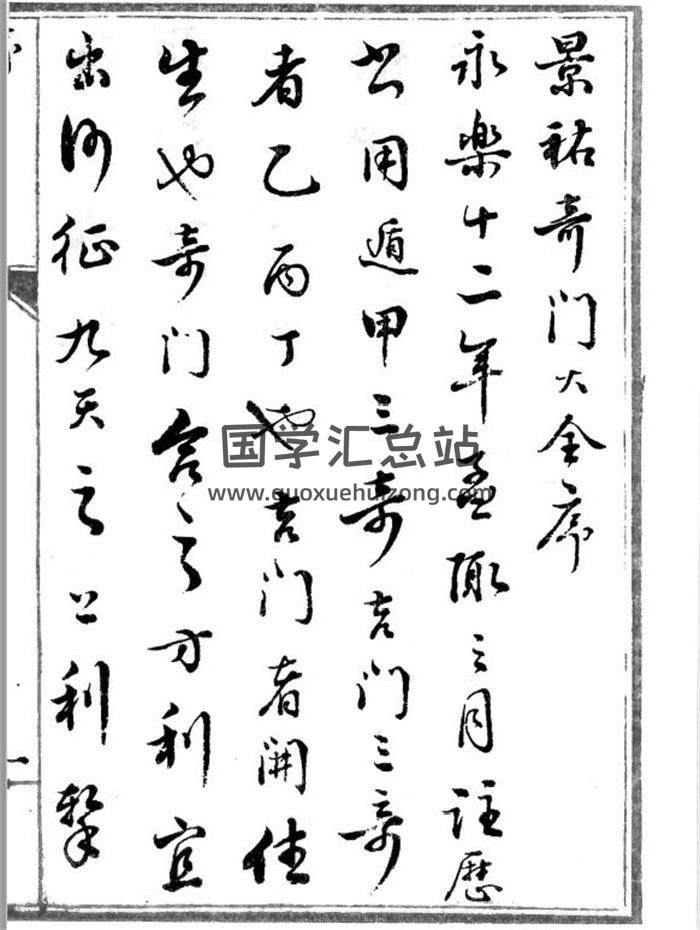 景祐奇门大全序
永楽十二年孟陬之月註歷
用遁甲三奇吉门三奇
者乙丙丁也吉门者開休
生也奇门合之方利宜
出行征九天之上利擊
国学汇总站
www.guoxuehuizong.com
一